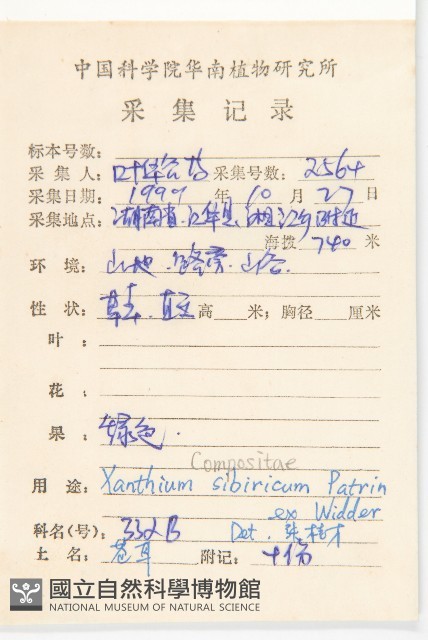 中国科学院华南植物研究所
采集记录
标本号数:
采集人: 叶华谷等 采集号数: 2564
采集日期: 1999 年 10 月 27 日
采集地点: 湖南省.江华县.湘江乡附近
海拨 740 米
环境: 山地.路旁.山谷.
性状: 草本.直立 高 米; 胸径 厘米
叶:
花:
果: 绿色.
Compositae
用途: Xanthium sibiricum Patrin
ex Widder
科名(号): 332B Det.
土名: 苍耳 附记: 十份
國立自然科學博物館
NATIONAL MUSEUM OF NATURAL SCIENCE